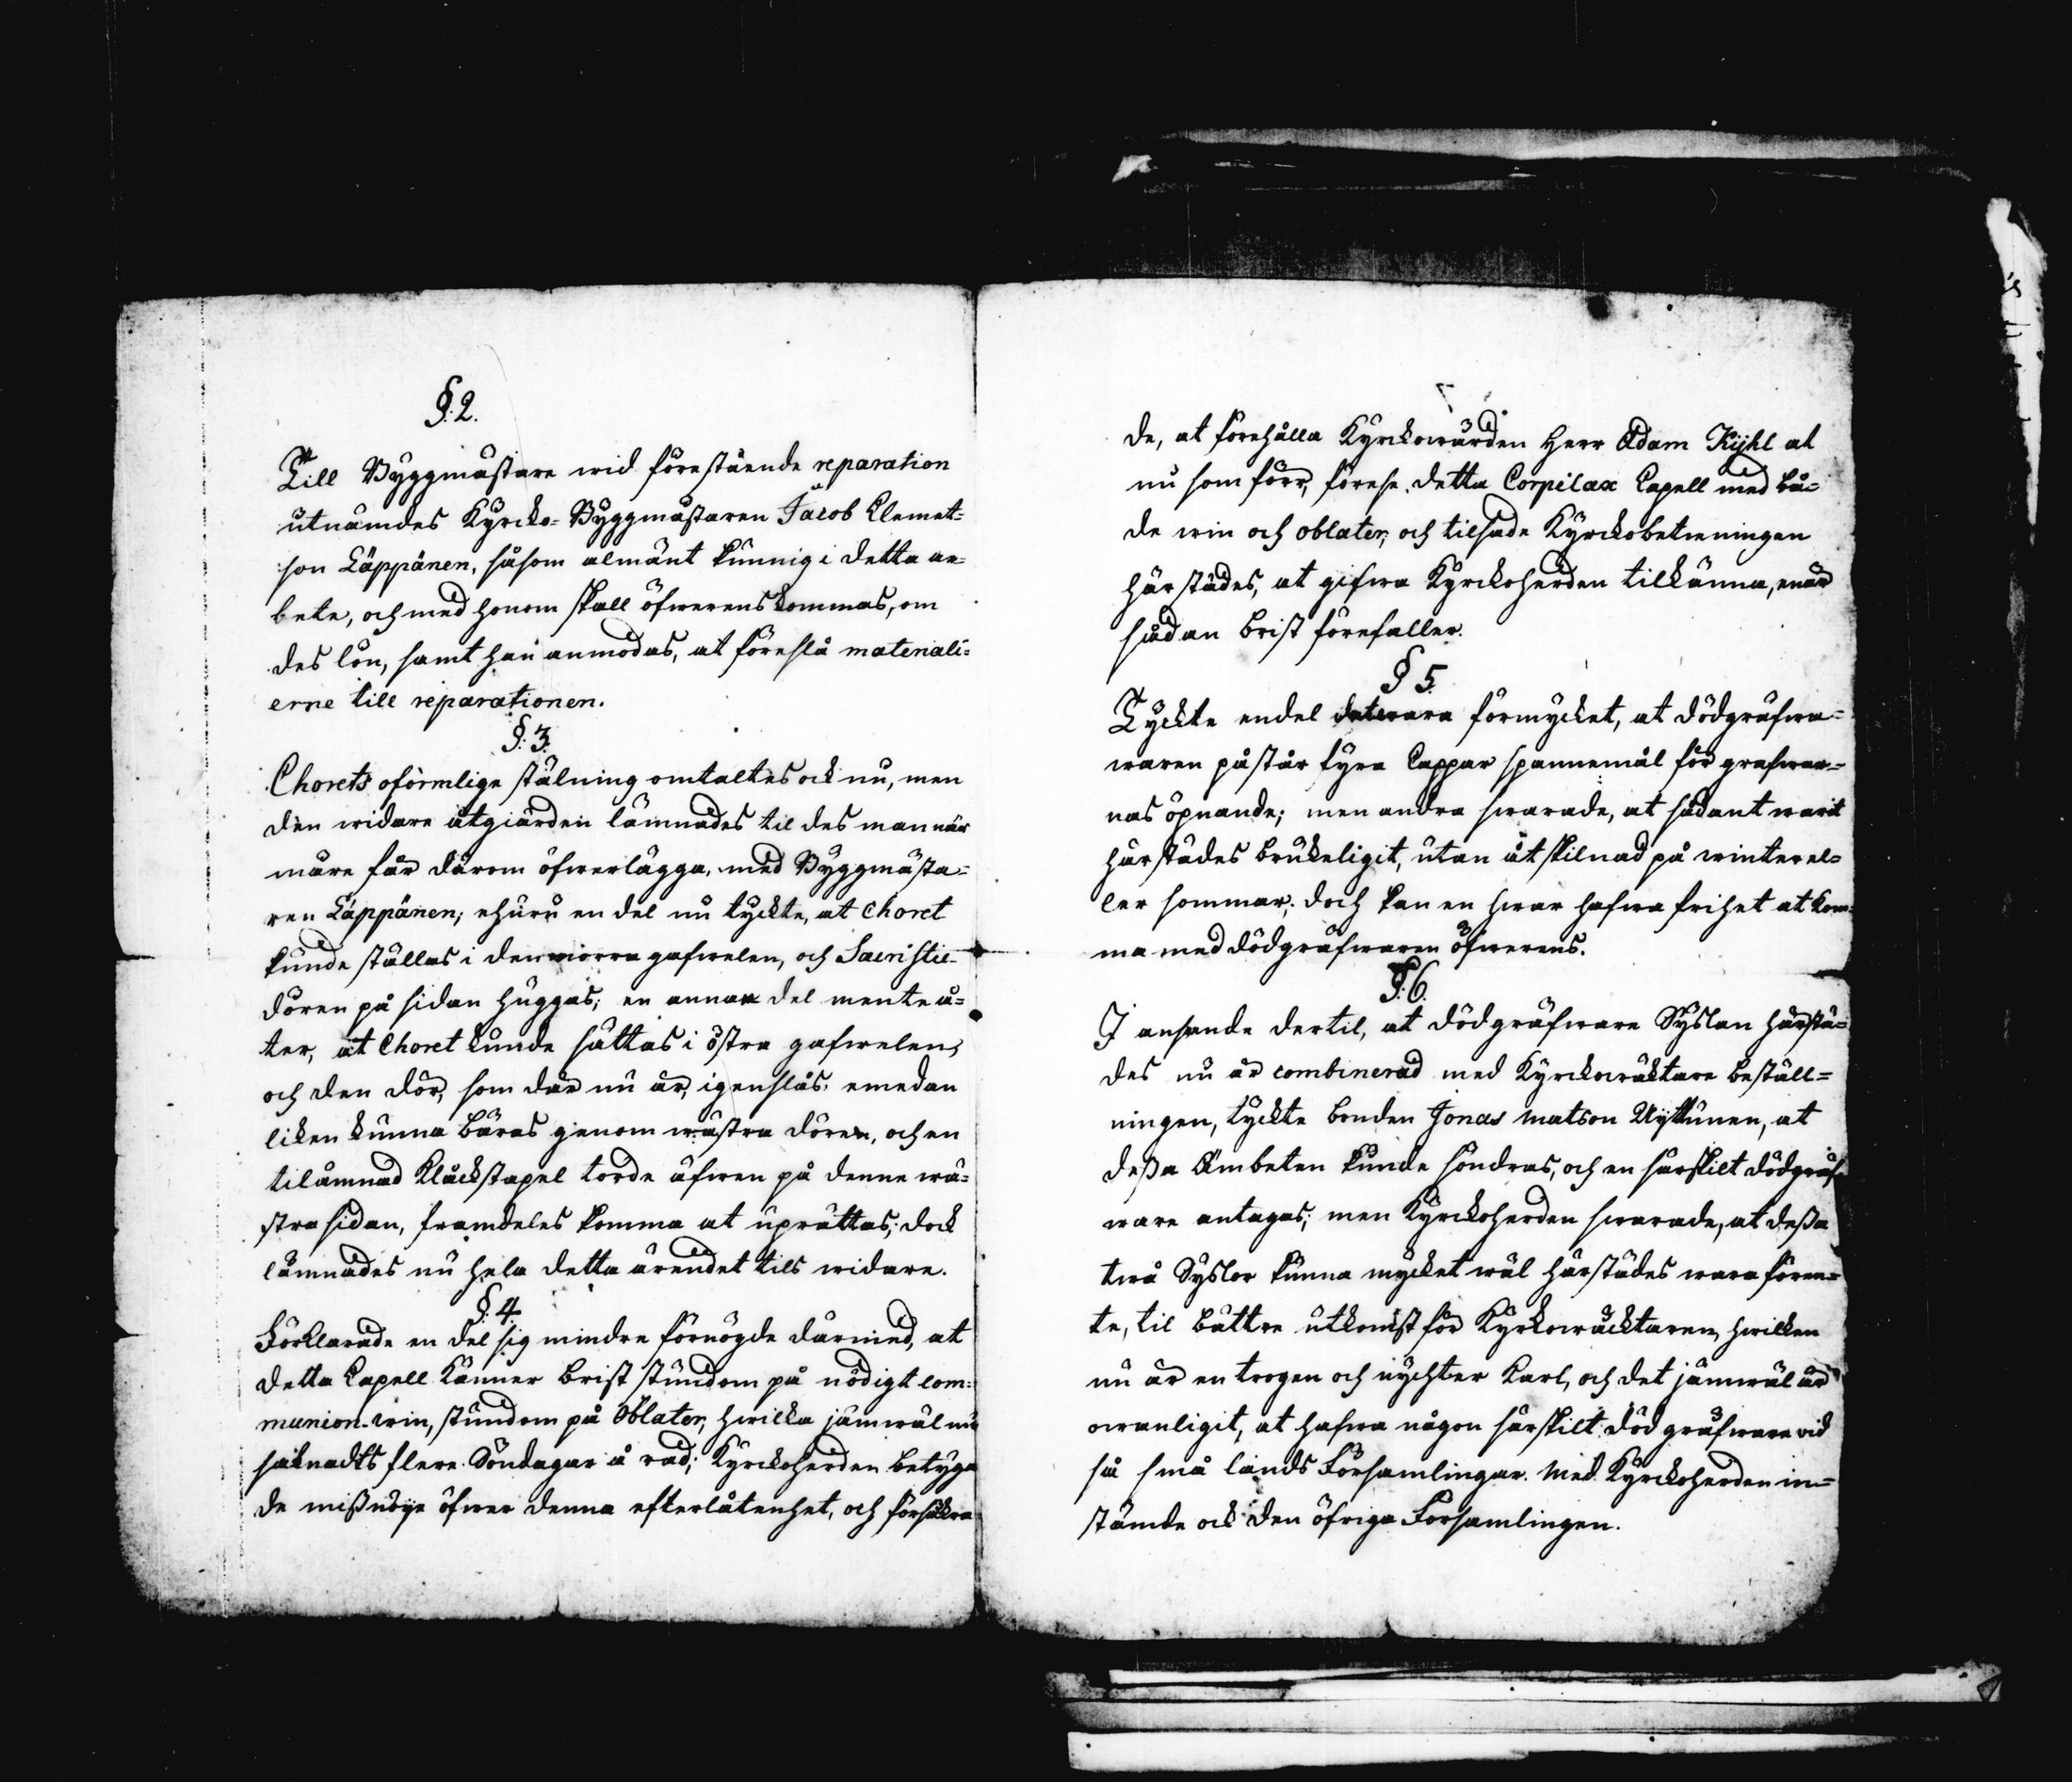 §. 2.
Till Byggmästare wid förestående reparation
utnämdes Kyrcko-Byggmästaren Jacob Clemet=
son Läppänen, såsom almänt kunnig i detta ar=
bete, och med honom skall öfwerenskommas, om
des lön, samt han anmodas, at föreslå materiali=
erne till reparationen.
§. 3.
Chorets oförmlige stälning omtaltes ock nu, men
den widare åtgiärden lämnades til des man när
mare får därom öfwerlägga, med Byggmästa=
ren Läppänen; ehuru en del nu tyckte, at Choret
kunde ställas i den norra gafwelen, och Sacristie-
dören på sidan huggas; en annan del mente å=
ter, at Choret kunde sättas i östra gafwelen,
och den dör, som där nu är, igenslås: emedan
liken kunna bäras genom wästra dören, och en
tilämnad Klåckstapel torde äfwen på denne wä=
stra sidan, framdeles komma at uprättas; dock
lämnades nu hela detta ärendet tils widare.
§. 4.
Förklarade en del sig mindre förnögde därmed, at
detta Capell känner brist stundom på nödigt com=
munion-win, stundom på Oblater, hwilka jämwäl nu
saknadts flere Söndagar å rad; Kyrckoherden betyga
de missnöje öfwer denna efterlåtenhet, och försäkra
de, at förehålla Kyrckowärden Herr Adam Kijhl at
nu som förr, förese detta Corpilax Capell med bå=
de win och oblater, och tilsade Kyrckobetieningen
här städes, at gifwa Kyrckoherden tilkänna, enär
sådan brist förefaller.
§ 5.
Tyckte endel det wara förmycket, at dödgräfwa=
waren påstår fyra Cappar spannemål för grafwar=
nas öpnande; men andra swarade, at sådant warit
härstädes brukeligit, utan åtskilnad på winter el=
ler sommar; doch kan en hwar hafwa frihet at kom=
ma med dödgräfwaren öfwerens.
§. 6.
I anseende dertil, at dödgräfware Syslan härstä=
des nu är combinerad med Kyrckowäktare beställ=
ningen, tyckte bonden Jonas Matson Uyttunen, at
dessa Ämbeten kunde söndras, och en särskilt dödgräf=
ware antagas; men Kyrckoherden swarade, at dessa
twå Syslor kunna mycket wäl härstädes wara fören=
te, til bättre utkomst för Kyrkowäcktaren, hwilken
nu är en trogen och nychter Karl, och det jämwäl är
owanligit, at hafwa någon särskilt död gräfware wid
så små lands Församlingar. Med Kyrckoherden in=
stämde ock den öfriga Församlingen.